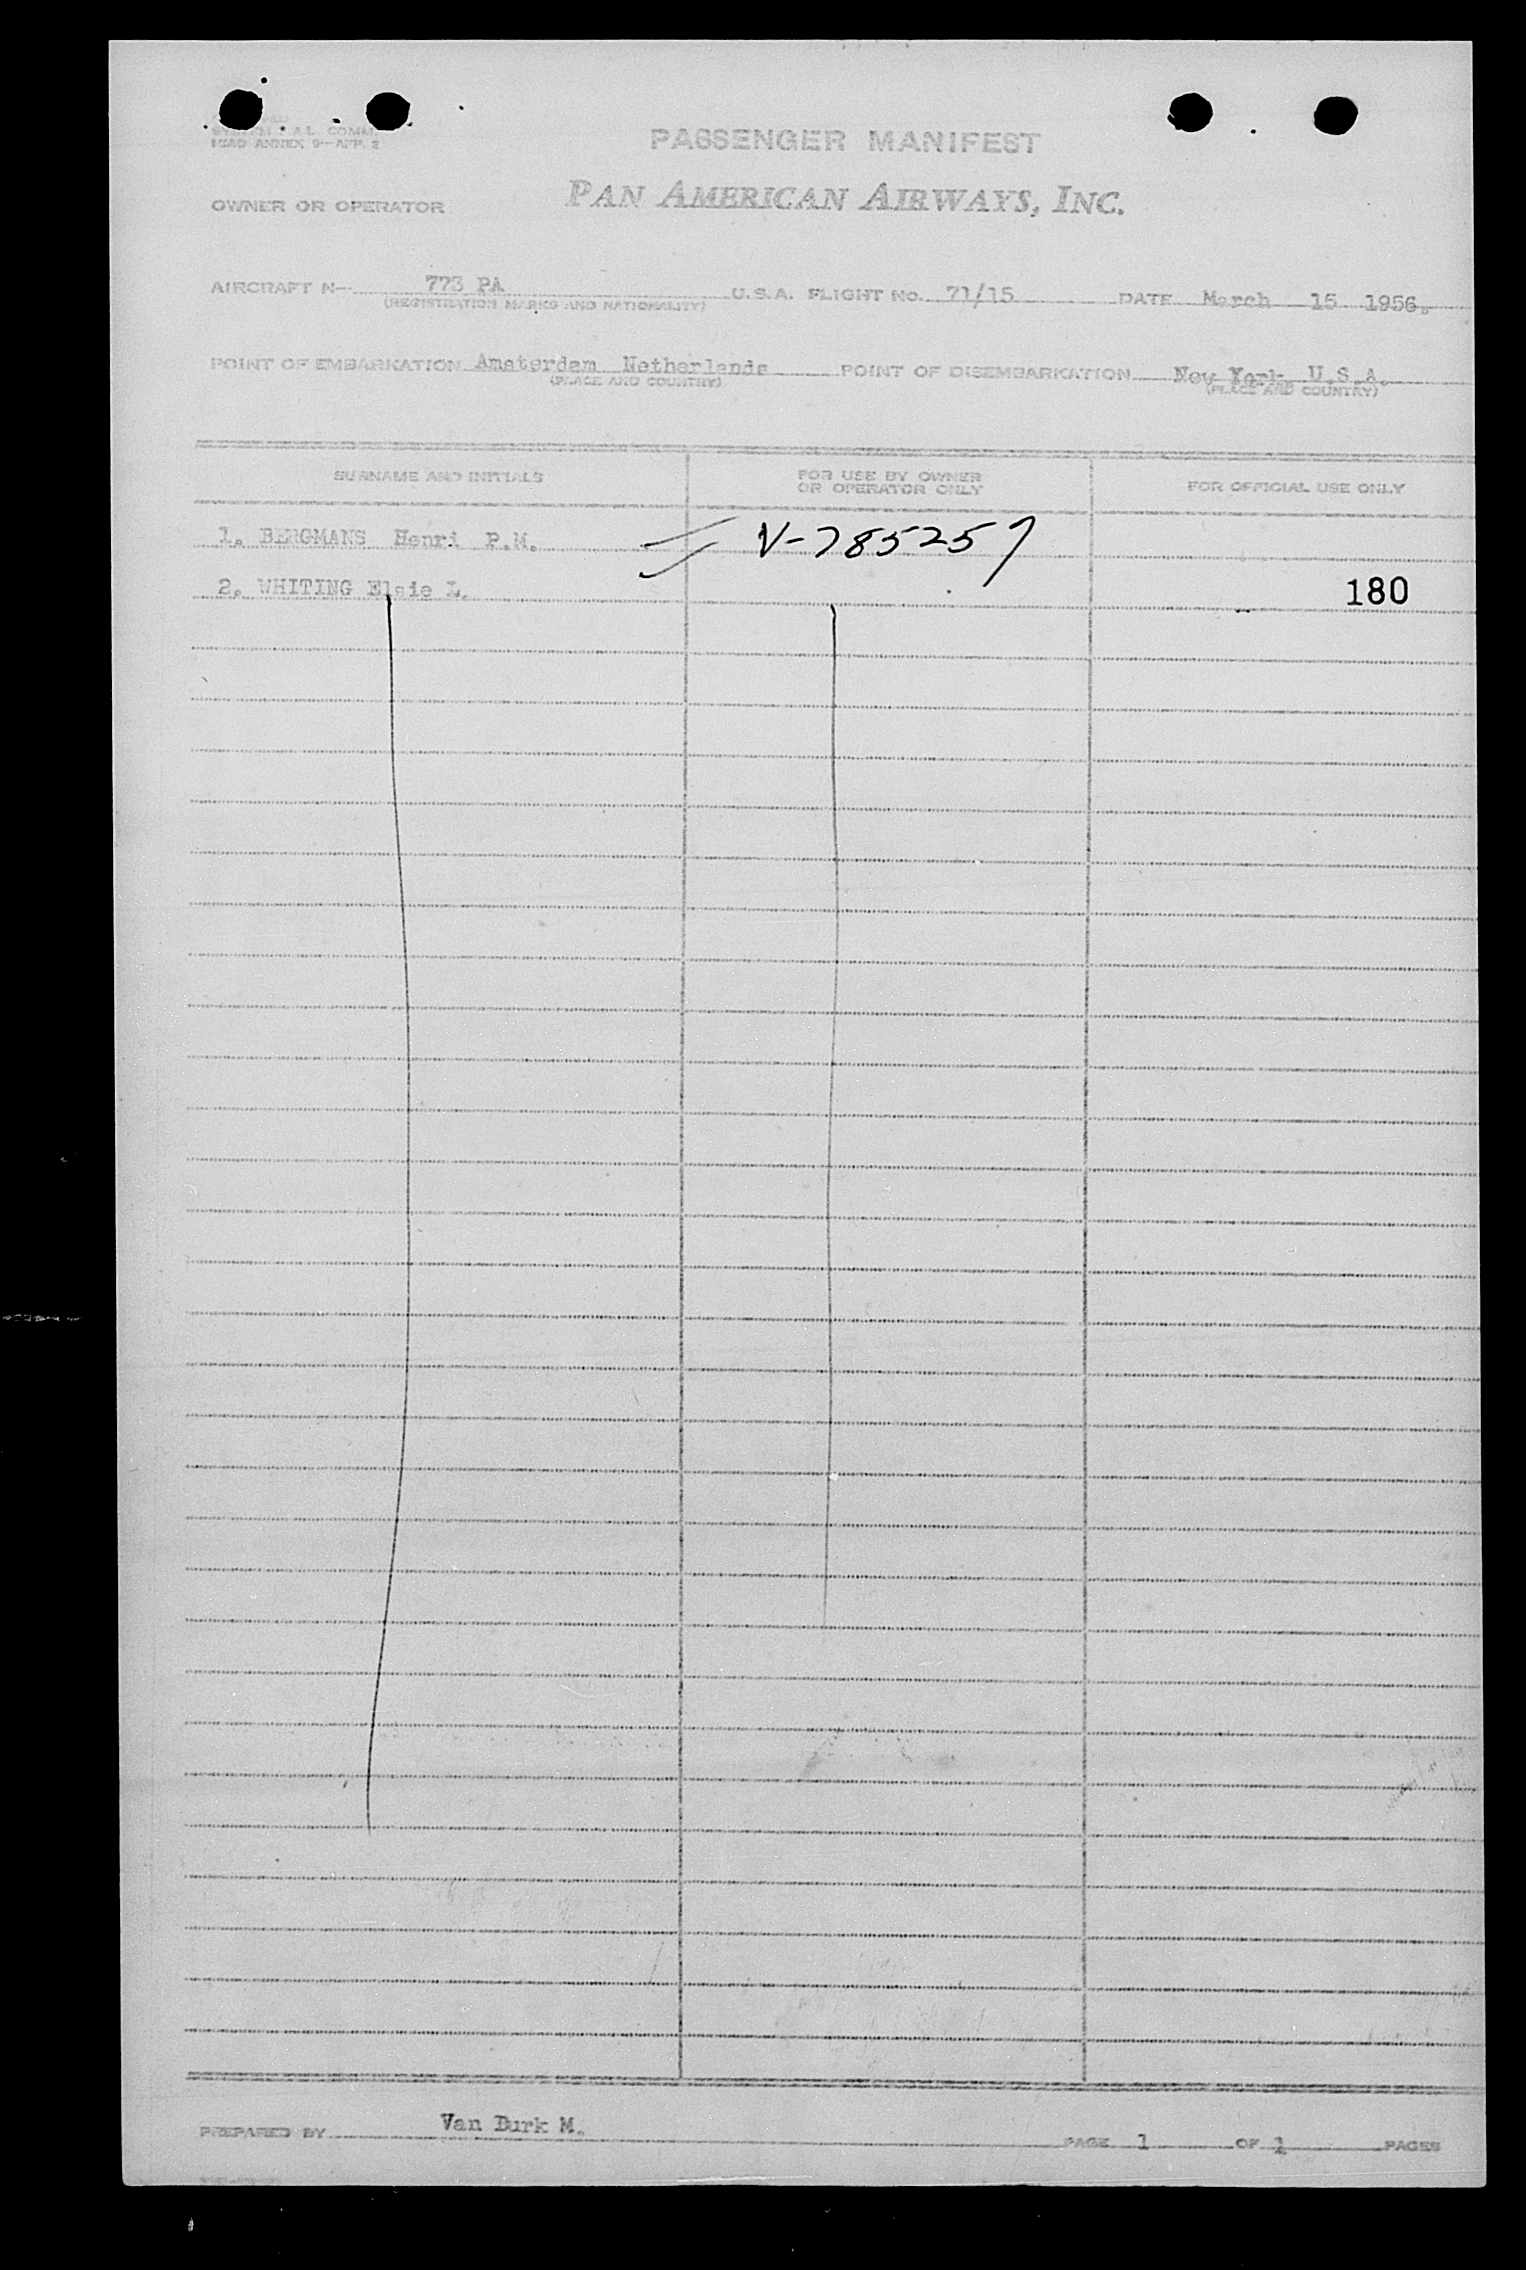 SYSTEM
PASSENGER MANIFEST
OWNER OR OPERATOR PAN AMERICAN AIRWAYS, INC.
AIRCRAFT N— 773 PA U.S.A. FLIGHT NO. 71/15 DATE March 15 1956.
(REGISTRATION MARKS AND NATIONALITY)
POINT OF EMBARKATION Amsterdam Netherlands POINT OF DISEMBARKATION New York U.S.A.
(PLACE AND COUNTRY) (PLACE AND COUNTRY)
SURNAME AND INITIALS FOR USE BY OWNER OR OPERATOR ONLY FOR OFFICIAL USE ONLY
1. BERGMANS Henri P.M. V-785257
2. WHITING Elsie L. 180
PREPARED BY Van Durk M. PAGE 1 OF 1 PAGES